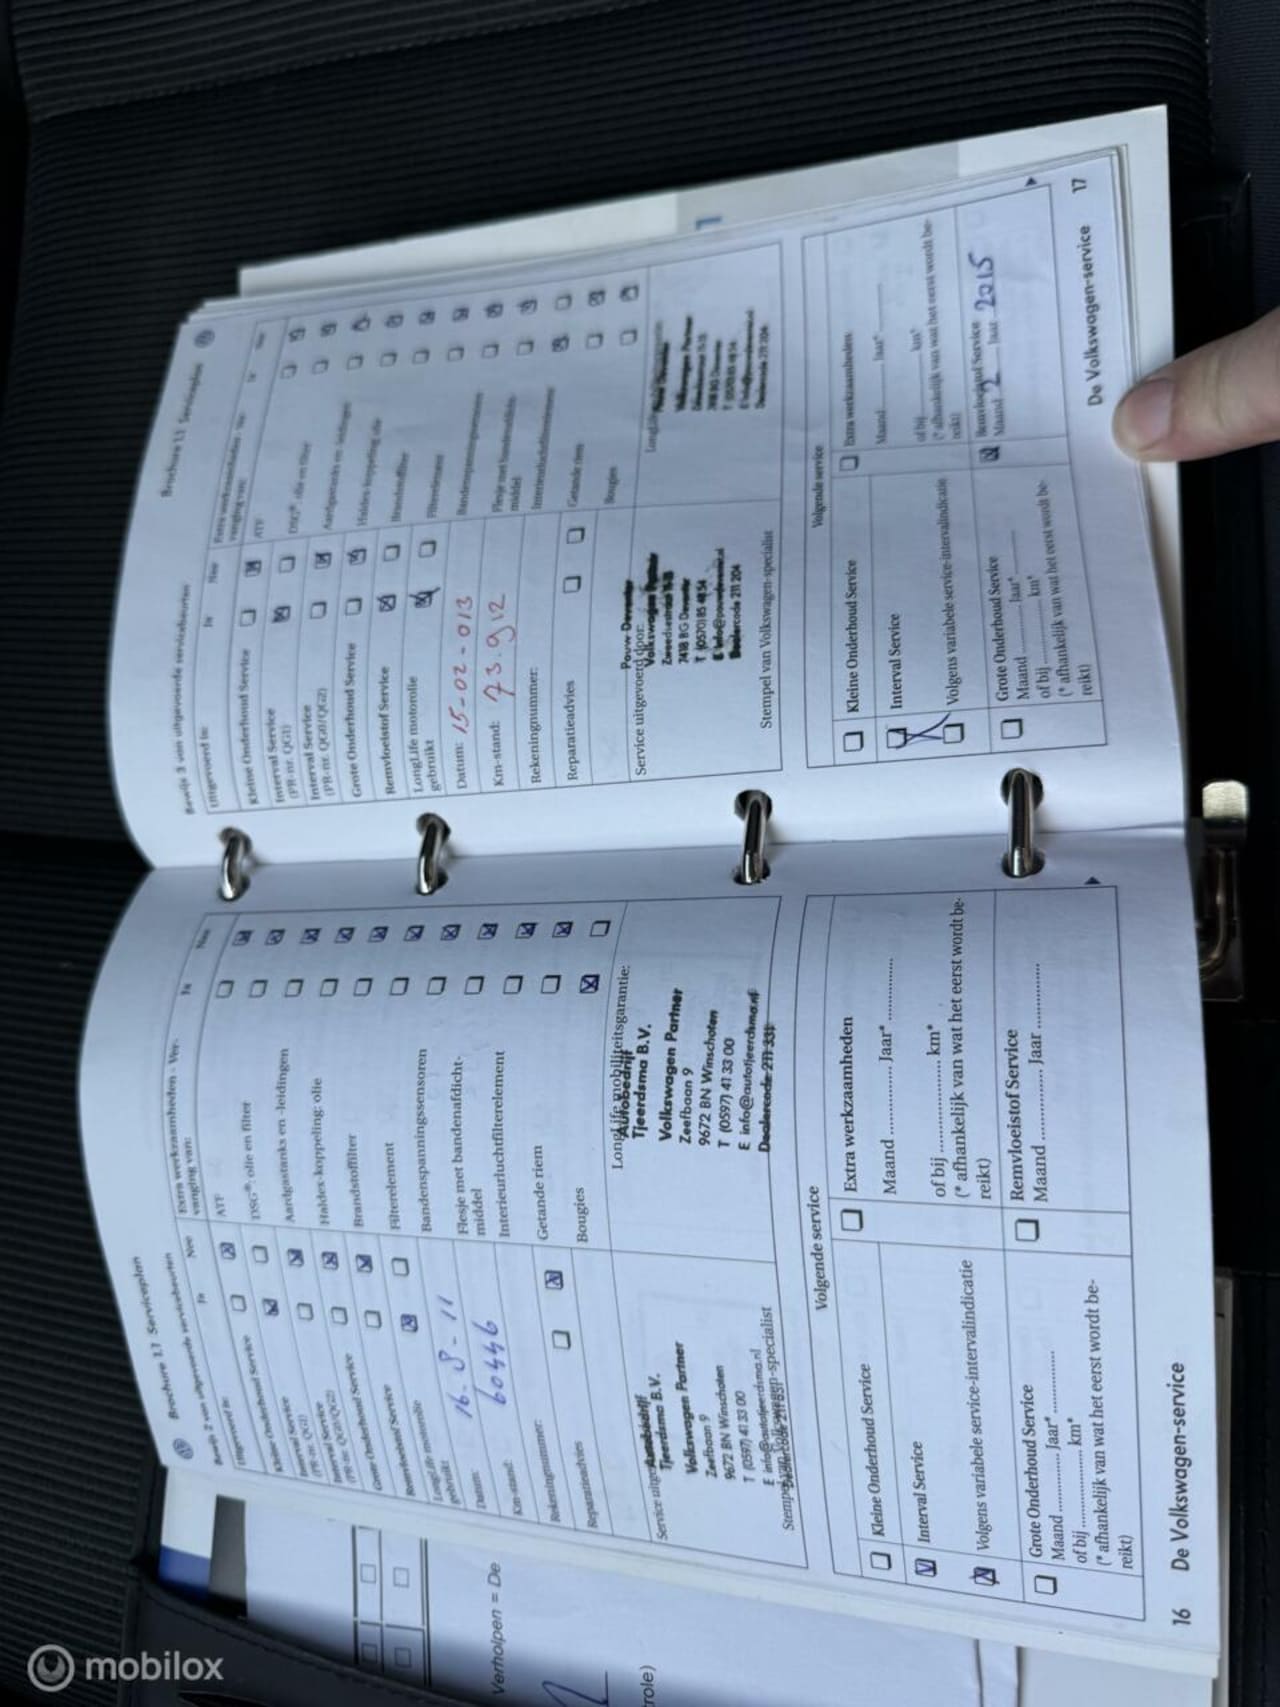 Brochure 1.1 Serviceplan
Bewijs 2 van uitgevoerde servicebeurten
Uitgevoerd is:
Ja
Nee
Kleine Onderhoud Service
Interval Service
(PR-nr. QG1)
Interval Service
(PR-nr. QG0/QG2)
Grote Onderhoud Service
Remvloeistof Service
LongLife motorolie
gebruikt
Datum: 16-8-11
Km-stand: 60446
Rekeningnummer:
Reparatieadvies
Extra werkzaamheden - Ver-
vanging van:
Ja
Nee
ATF
DSG®: olie en filter
Aardgastanks en -leidingen
Haldex-koppeling: olie
Brandstoffilter
Filterelement
Bandenspanningssensoren
Flesje met bandenafdicht-
middel
Interieurluchtfilterelement
Getande riem
Bougies
Autobedrijf
Tjeerdsma B.V.
Volkswagen Partner
Zeefbaan 9
9672 BN Winschoten
T (0597) 41 33 00
E info@autotjeerdsma.nl
Stempel van Volkswagen-specialist
LongLife mobiliteitsgarantie:
Autobedrijf
Tjeerdsma B.V.
Volkswagen Partner
Zeefbaan 9
9672 BN Winschoten
T (0597) 41 33 00
E info@autotjeerdsma.nl
Dealercode 211 331
Volgende service
Kleine Onderhoud Service
Interval Service
Volgens variabele service-intervalindicatie
Grote Onderhoud Service
Maand ............ Jaar* ............
of bij ............ km*
(* afhankelijk van wat het eerst wordt be-
reikt)
Extra werkzaamheden
Maand ............ Jaar* ............
of bij ............ km*
(* afhankelijk van wat het eerst wordt be-
reikt)
Remvloeistof Service
Maand ............ Jaar ............
16 De Volkswagen-service
Brochure 1.1 Serviceplan
Bewijs 3 van uitgevoerde servicebeurten
Uitgevoerd is:
Ja
Nee
Kleine Onderhoud Service
Interval Service
(PR-nr. QG1)
Interval Service
(PR-nr. QG0/QG2)
Grote Onderhoud Service
Remvloeistof Service
LongLife motorolie
gebruikt
Datum: 15-02-013
Km-stand: 73.912
Rekeningnummer:
Reparatieadvies
Extra werkzaamheden - Ver-
vanging van:
ATF
DSG®: olie en filter
Aardgastanks en -leidingen
Haldex-koppeling: olie
Brandstoffilter
Filterelement
Bandenspanningssensoren
Flesje met bandenafdicht-
middel
Interieurluchtfilterelement
Getande riem
Bougies
Service uitgevoerd door:
Pouw Deventer
Volkswagen Partner
7418 BG Deventer
T (0570) 85 48 54
Dealercode 211 204
Stempel van Volkswagen-specialist
Volkswagen Partner
Dealercode 211 204
Volgende service
Kleine Onderhoud Service
Interval Service
Volgens variabele service-intervalindicatie
Grote Onderhoud Service
Maand ............ Jaar* ............
of bij ............ km*
(* afhankelijk van wat het eerst wordt be-
reikt)
Extra werkzaamheden
Maand ............ Jaar* ............
of bij ............ km*
(* afhankelijk van wat het eerst wordt be-
reikt)
Remvloeistof Service
Maand 2 Jaar 2015
De Volkswagen-service 17
Verholpen = De
trole)
mobilox